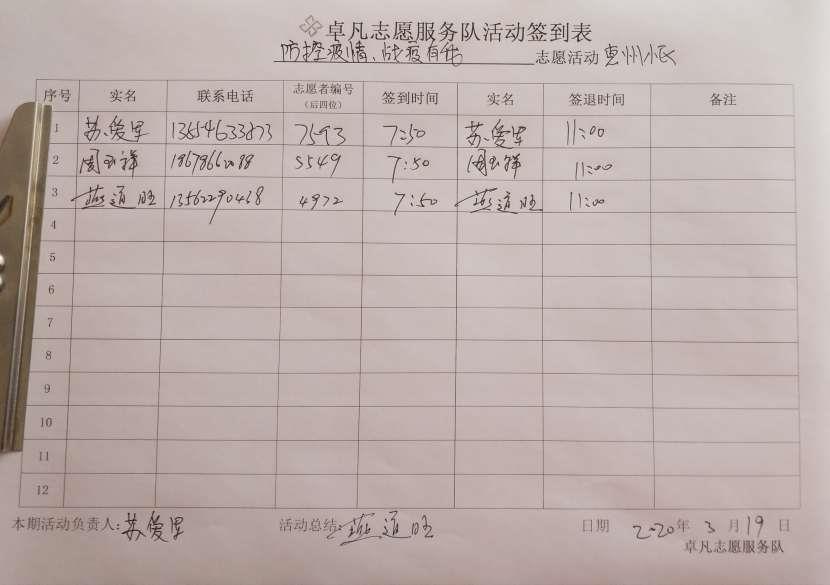 卓凡志愿服务队活动签到表
防控疫情、战疫有我 志愿活动 惠州小区
序号 实名 联系电话 志愿者编号（后四位） 签到时间 实名 签退时间 备注
1 苏爱军 7593 7:50 苏爱军 11:00
2 周玉祥 5549 7:50 周玉祥 11:00
3 燕道旺 13562290468 4972 7:50 燕道旺 11:00
4
5
6
7
8
9
10
11
12
本期活动负责人：苏爱军 活动总结：燕道旺 日期 2020年 3月19日
卓凡志愿服务队